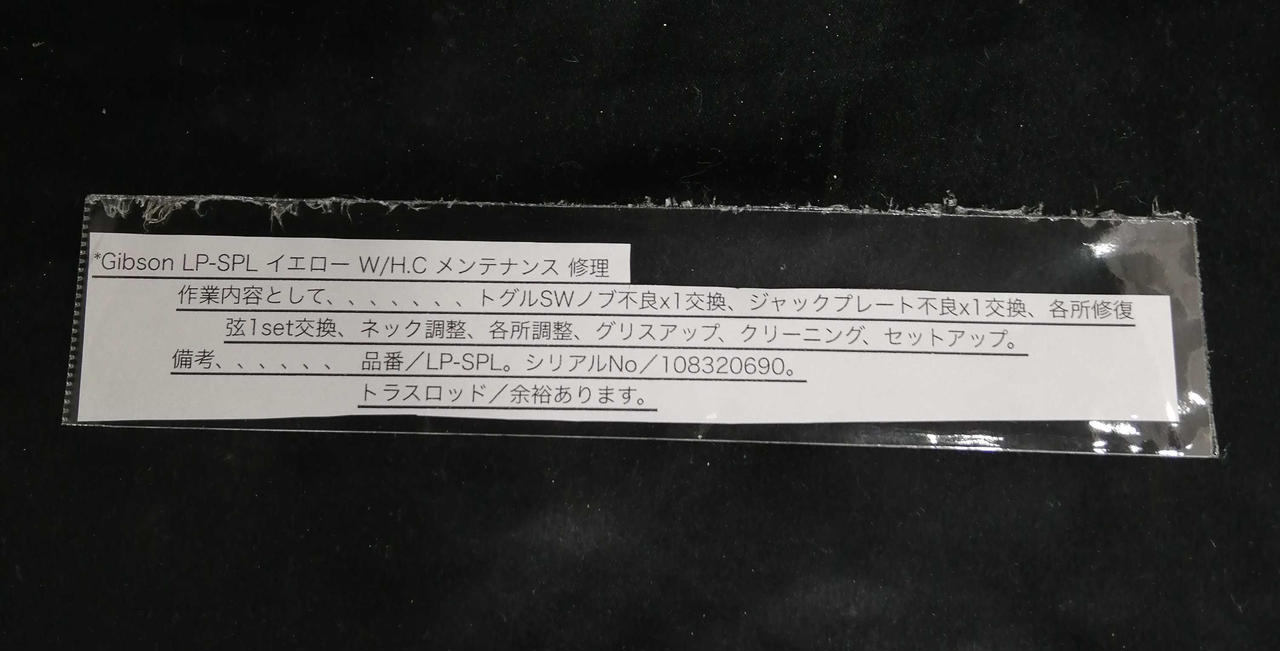 *Gibson LP-SPL イエロー W/H.C メンテナンス 修理
作業内容として、、、、、、、トグルSWノブ不良x1交換、ジャックプレート不良x1交換、各所修復
弦1set交換、ネック調整、各所調整、グリスアップ、クリーニング、セットアップ。
備考、、、、、、 品番／LP-SPL。シリアルNo／108320690。
トラスロッド／余裕あります。